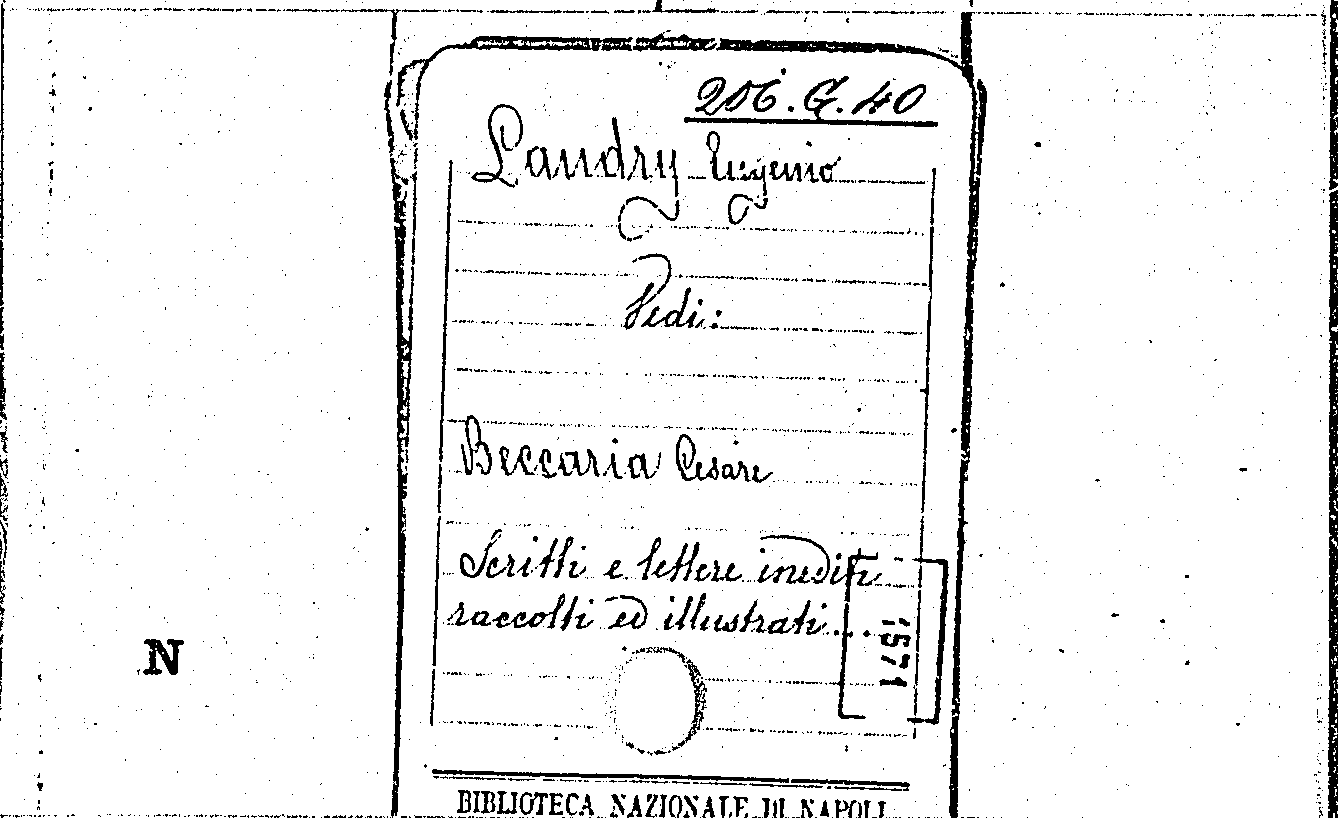 206.G.40
Landry Eugenio
Vedi:
Beccaria Cesare
Scritti e lettere inediti
raccolti ed illustrati...
1571
N
BIBLIOTECA NAZIONALE DI NAPOLI